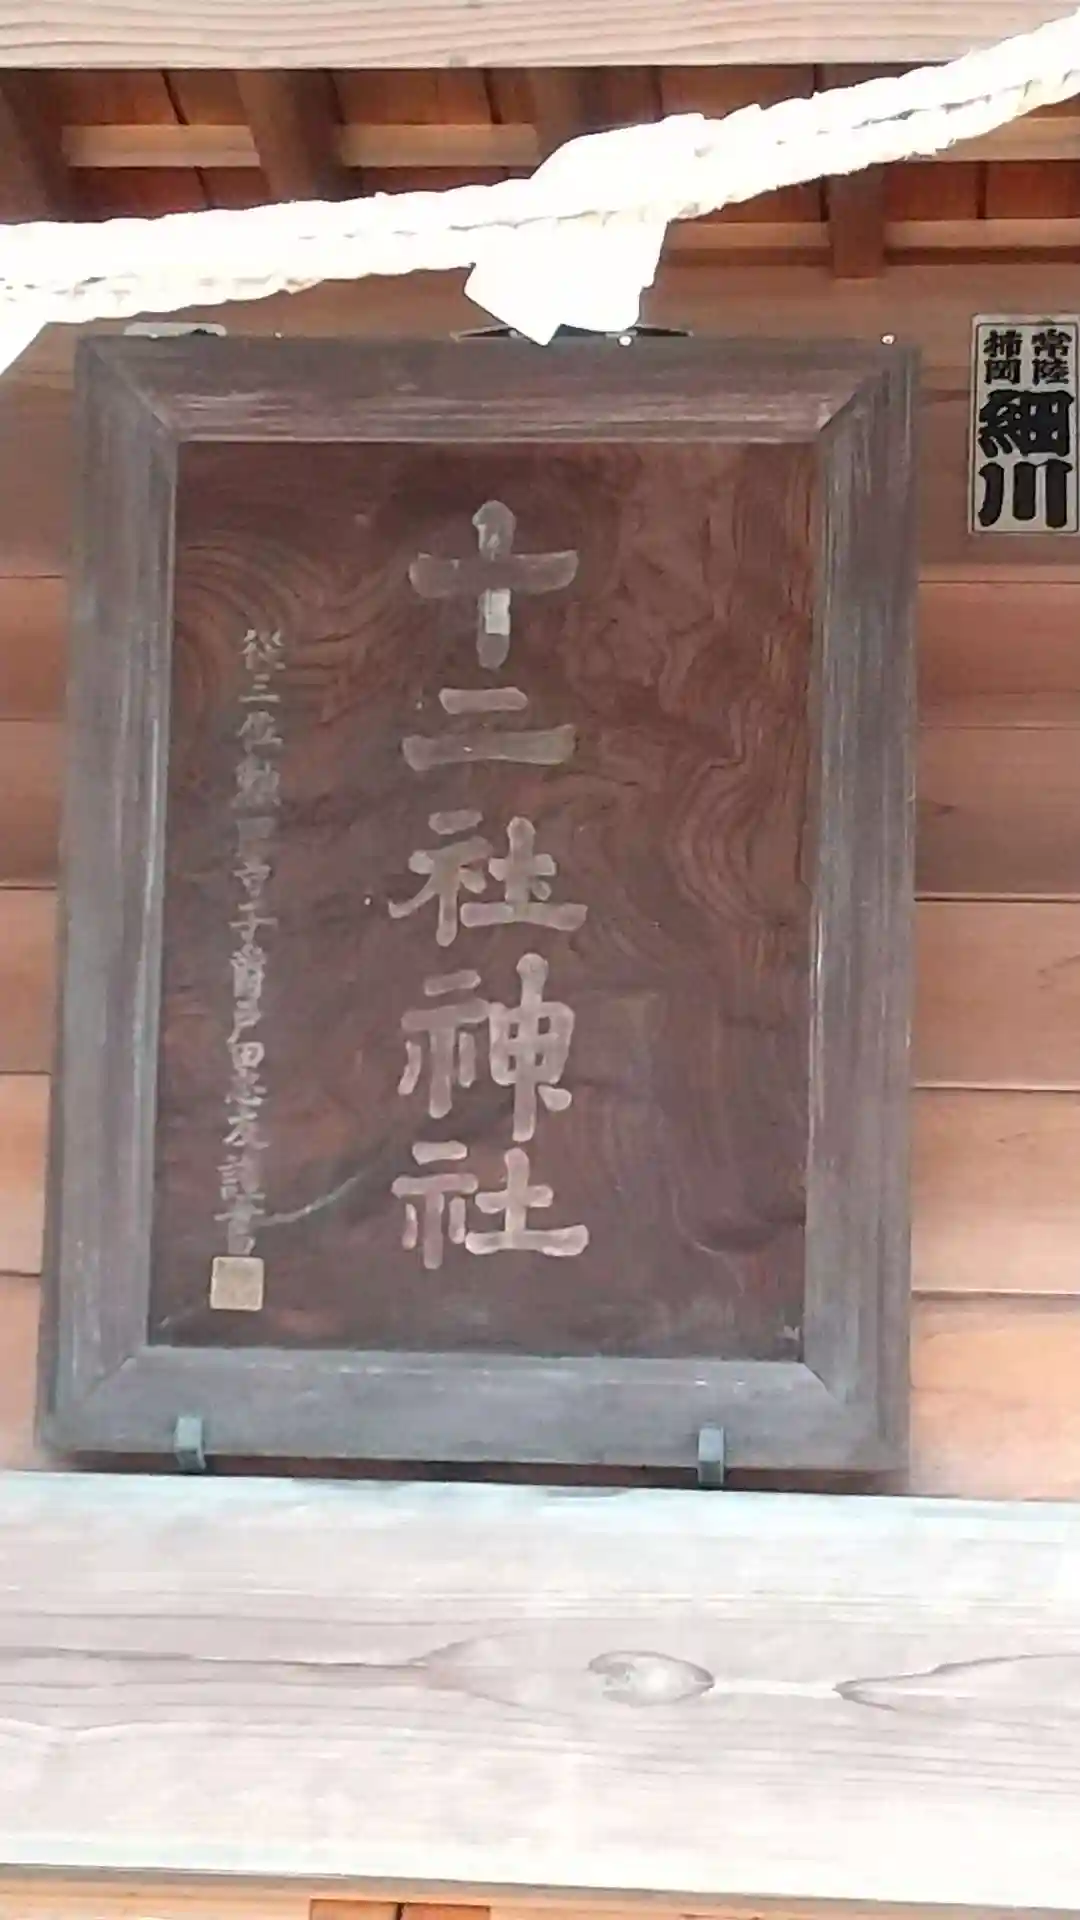 常陸
柿岡
細川
十二社神社
從三位勲四等子爵戸田忠友謹書